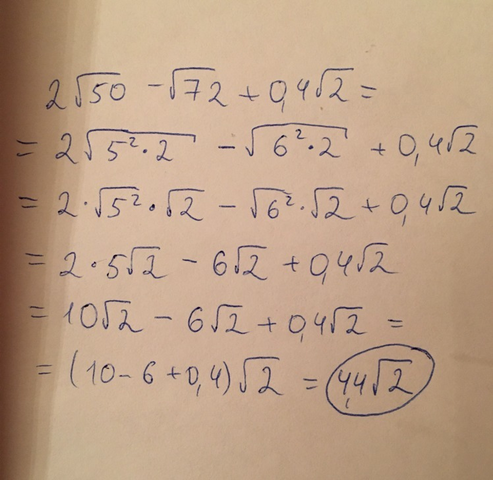 2√50 - √72 + 0,4√2 =
= 2√5²·2 - √6²·2 + 0,4√2
= 2·√5²·√2 - √6²·√2 + 0,4√2
= 2·5√2 - 6√2 + 0,4√2
= 10√2 - 6√2 + 0,4√2 =
= (10-6+0,4)√2 = 4,4√2